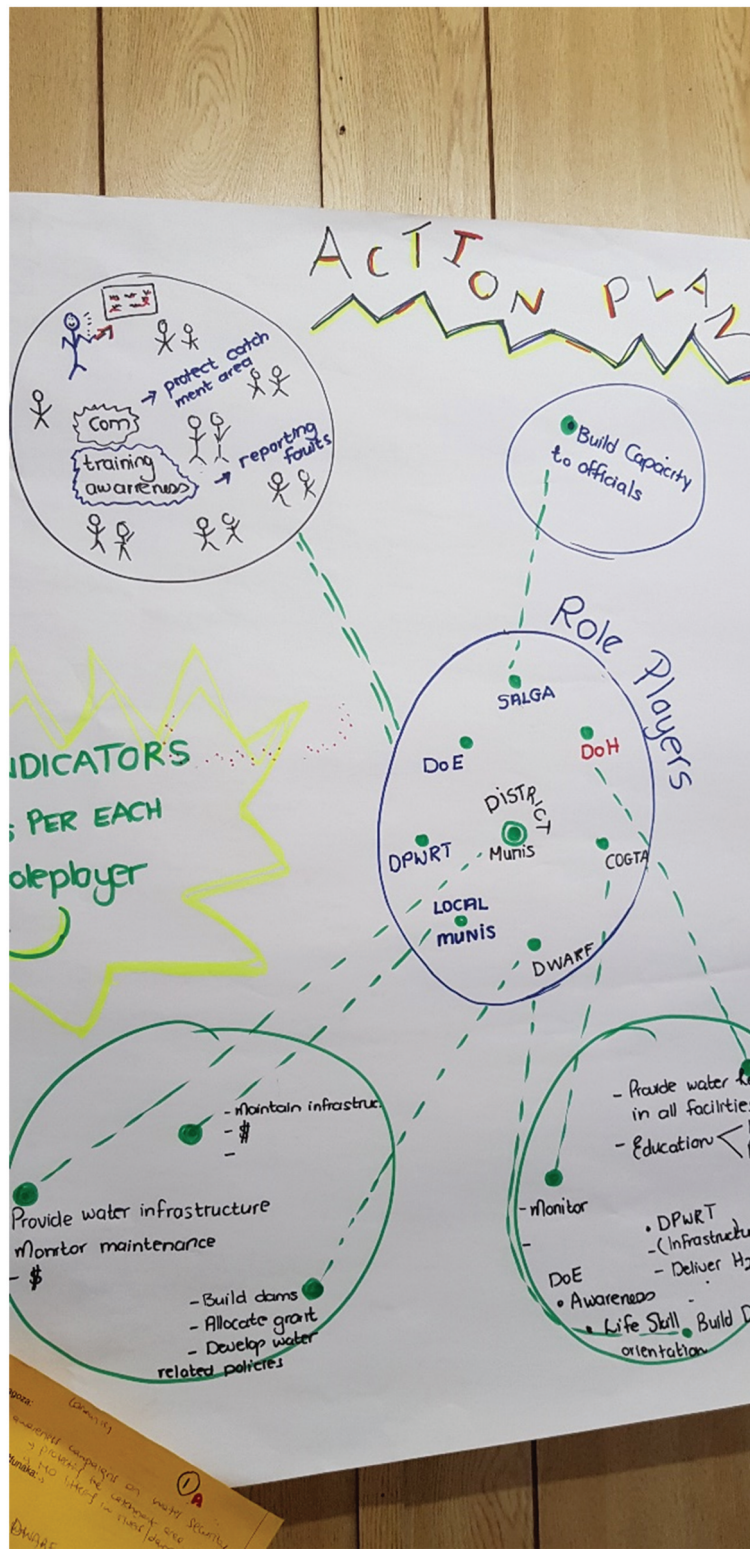 ACTION PLAN
Com
→ protect catch
ment area
training
awareness
→ reporting
faults
Build Capacity
to officials
Role Players
SALGA
DoE
DoH
DISTRICT
Munis
DPWRT
COGTA
LOCAL
MUNIS
DWARF
NDICATORS
PER EACH
oleplayer
- Maintain infrastruc.
- $
-
Provide water infrastructure
Monitor maintenance
- $
- Build dams
- Allocate grant
- Develop water
related policies
- Provide water
in all facilitie
- Education <
- Monitor
-
• DPWRT
- (Infrastructu
- Deliver H2
DoE
• Awareness
• Life Skill
orientation
• Build D
goza:
awareness campaigns on water security
→ protecting the catchment area
1
A
DWARF